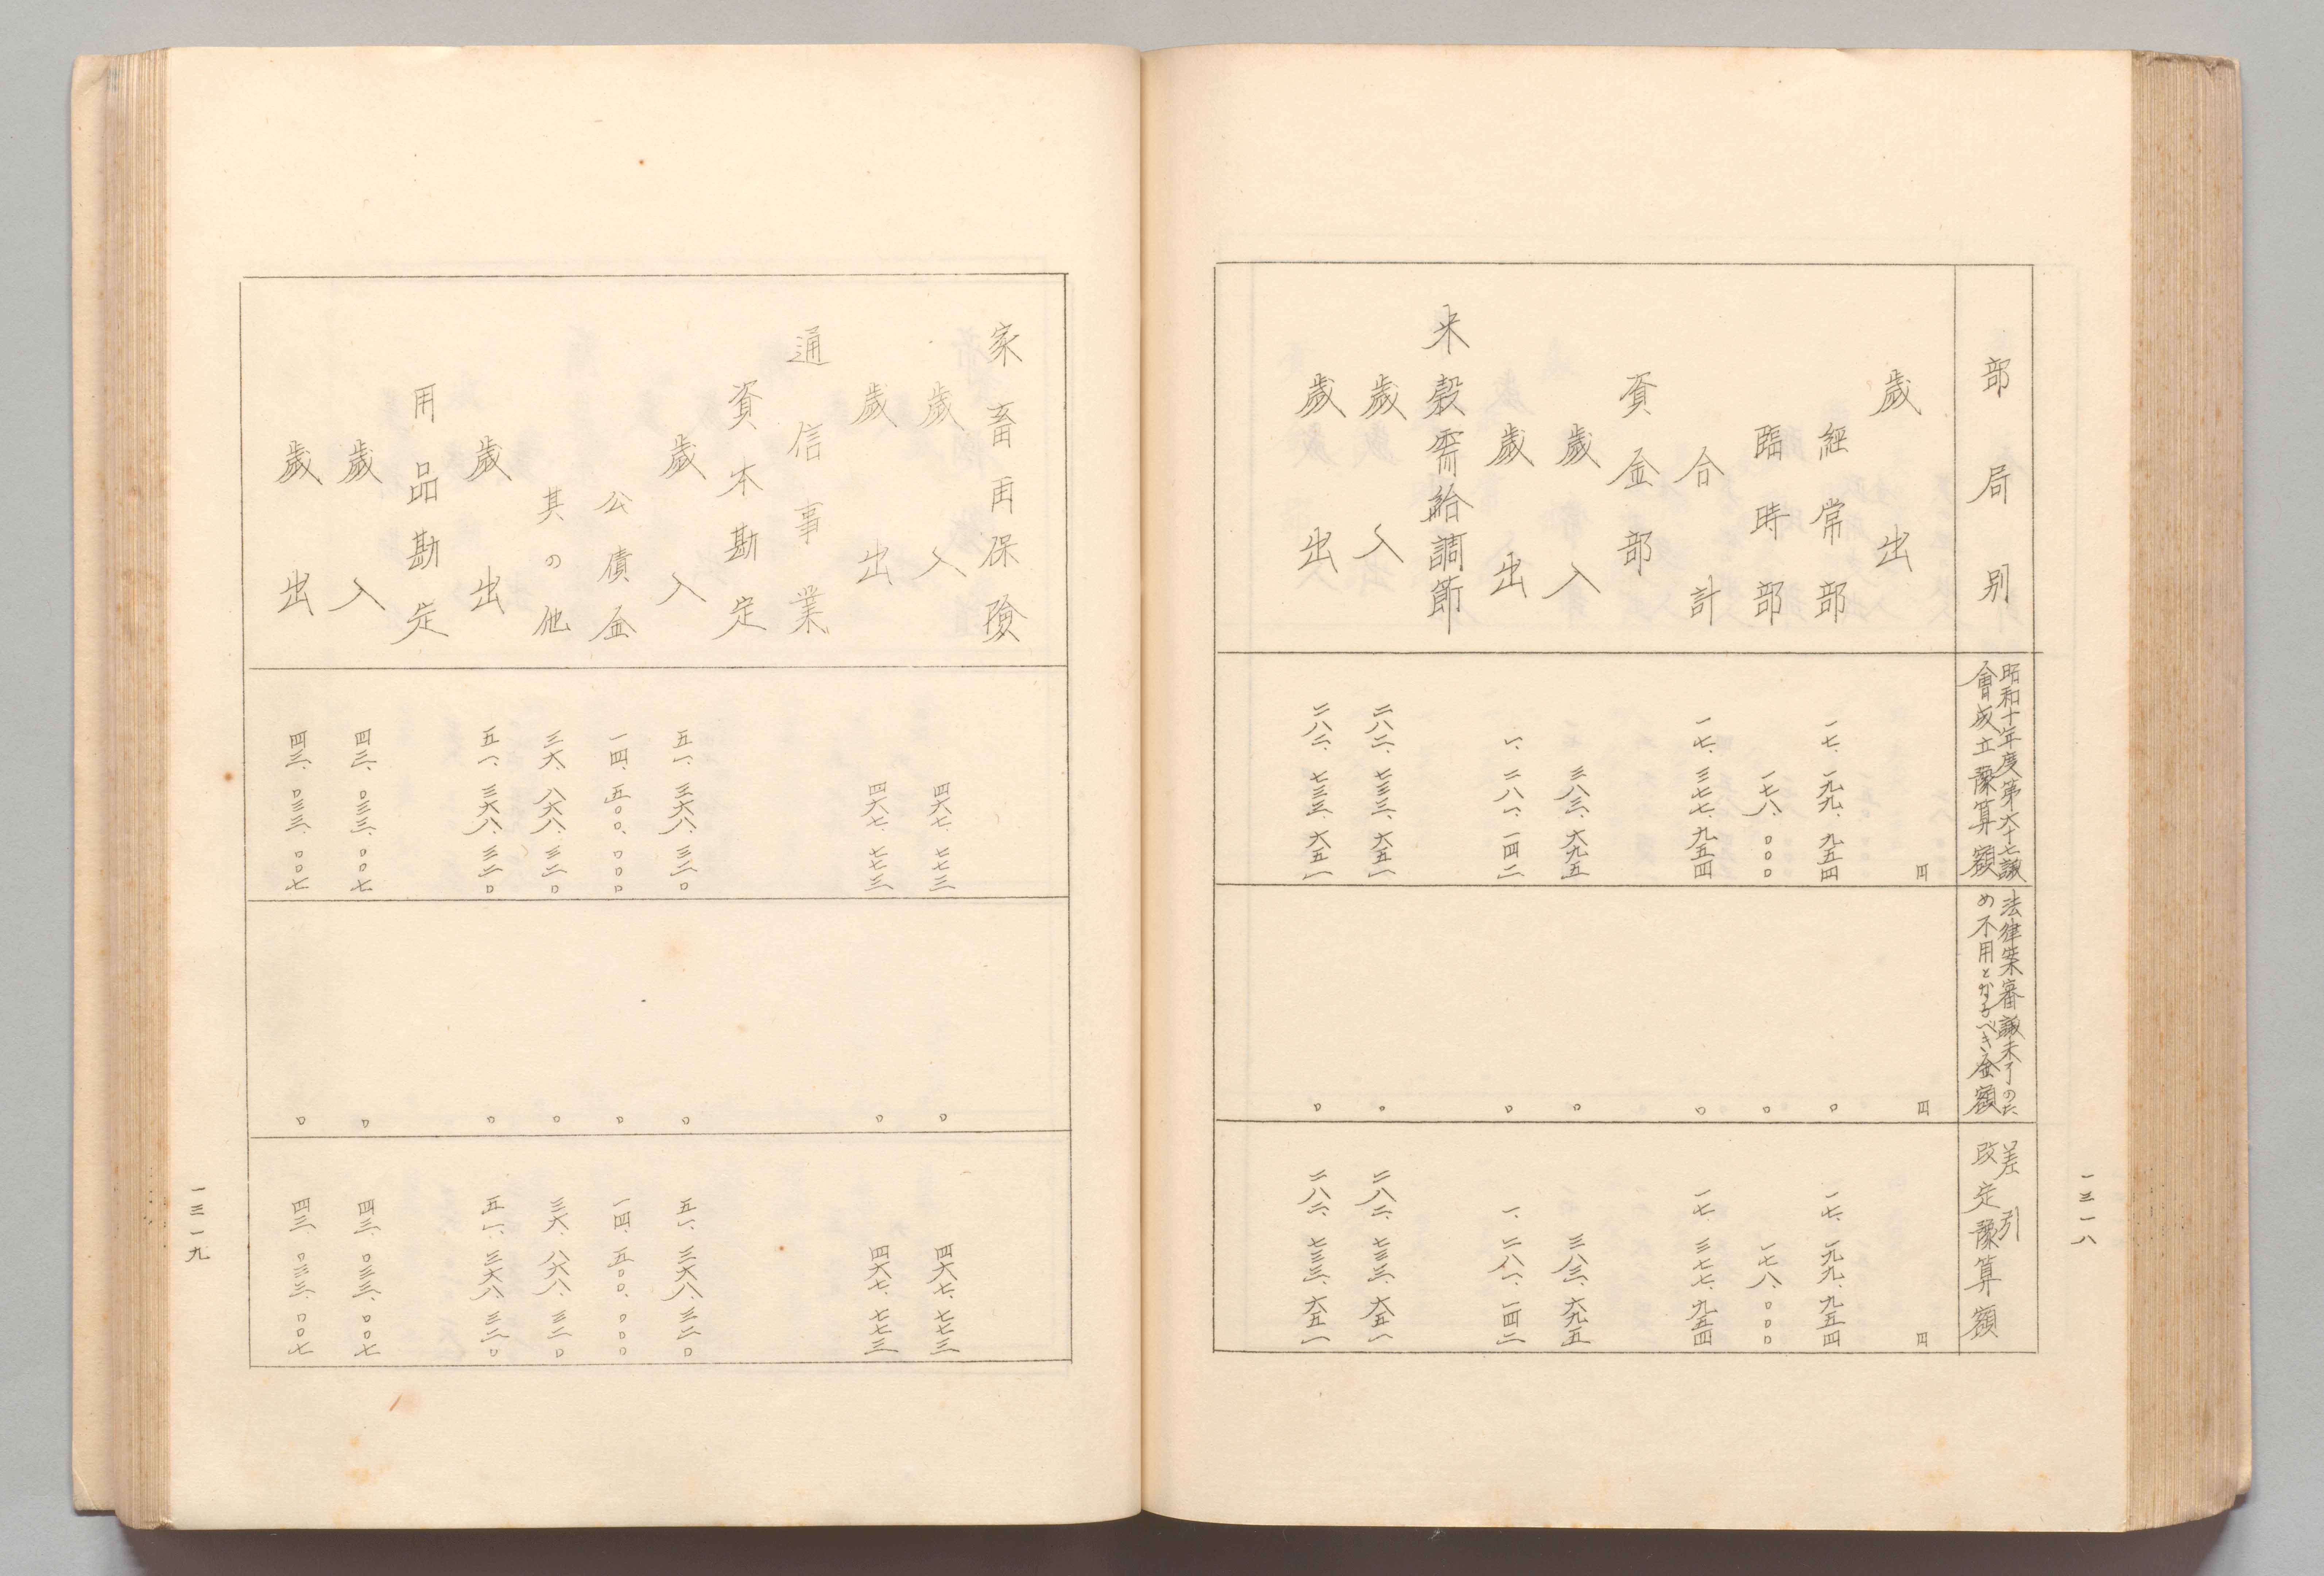 一三一八
部局別
昭和十年度第六十七議
會成立豫算額
法律案審議未了のた
め不用となるべき金額
差引
改定豫算額
歲出
円
円
円
經常部
一七、一九九、九五四
〇
一七、一九九、九五四
臨時部
一七八、〇〇〇
〇
一七八、〇〇〇
合計
一七、三七七、九五四
〇
一七、三七七、九五四
資金部
歲入
三八三、六九五
〇
三八三、六九五
歲出
一、二八一、一四二
〇
一、二八一、一四二
米穀需給調節
歲入
二八二、七三三、六五一
〇
二八二、七三三、六五一
歲出
二八二、七三三、六五一
〇
二八二、七三三、六五一
家畜再保險
歲入
四六七、七七三
〇
四六七、七七三
歲出
四六七、七七三
〇
四六七、七七三
通信事業
資本勘定
歲入
五一、三六八、三二〇
〇
五一、三六八、三二〇
公債金
一四、五〇〇、〇〇〇
〇
一四、五〇〇、〇〇〇
其の他
三六、八六八、三二〇
〇
三六、八六八、三二〇
歲出
五一、三六八、三二〇
〇
五一、三六八、三二〇
用品勘定
歲入
四三、〇三三、〇〇七
〇
四三、〇三三、〇〇七
歲出
四三、〇三三、〇〇七
〇
四三、〇三三、〇〇七
一三一九